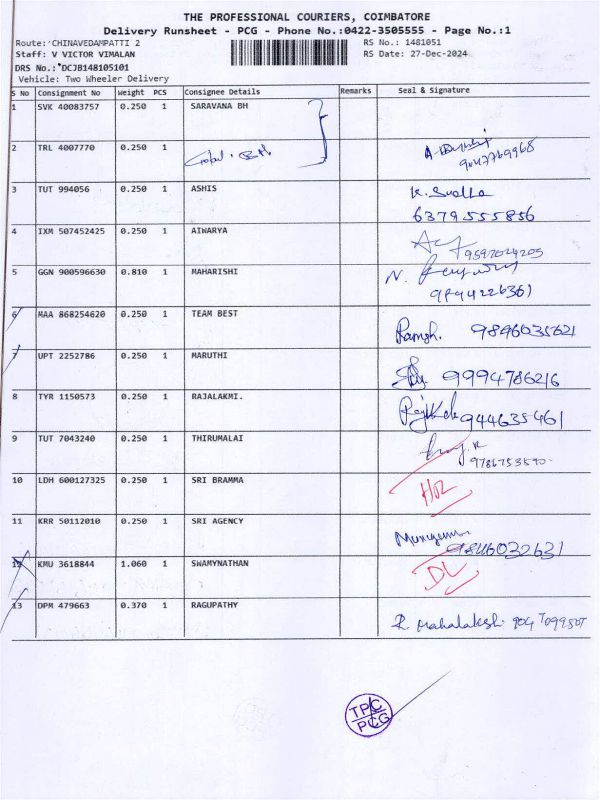 THE PROFESSIONAL COURIERS, COIMBATORE
Delivery Runsheet - PCG - Phone No.:0422-3505555 - Page No.:1
Route: CHINAVEDAMPATTI 2 RS No.: 1481051
Staff: V VICTOR VIMALAN RS Date: 27-Dec-2024
DRS No.: DCJB148105101
Vehicle: Two Wheeler Delivery
S No Consignment No Weight PCS Consignee Details Remarks Seal & Signature
1 SVK 40083757 0.250 1 SARAVANA BH
2 TRL 4007770 0.250 1
3 TUT 994056 0.250 1 ASHIS K. Sudha
6379555856
4 IXM 507452425 0.250 1 AIWARYA
9597024205
5 GGN 900596630 0.810 1 MAHARISHI
6 MAA 868254620 0.250 1 TEAM BEST Ramsh. 9896035621
7 UPT 2252786 0.250 1 MARUTHI 9994786216
8 TYR 1150573 0.250 1 RAJALAKMI. 944635461
9 TUT 7043240 0.250 1 THIRUMALAI
9786753590
10 LDH 600127325 0.250 1 SRI BRAMMA
11 KRR 50112010 0.250 1 SRI AGENCY
12 KMU 3618844 1.060 1 SWAMYNATHAN DL
13 DPM 479663 0.370 1 RAGUPATHY R. Mahalakshi
TPC
PCG